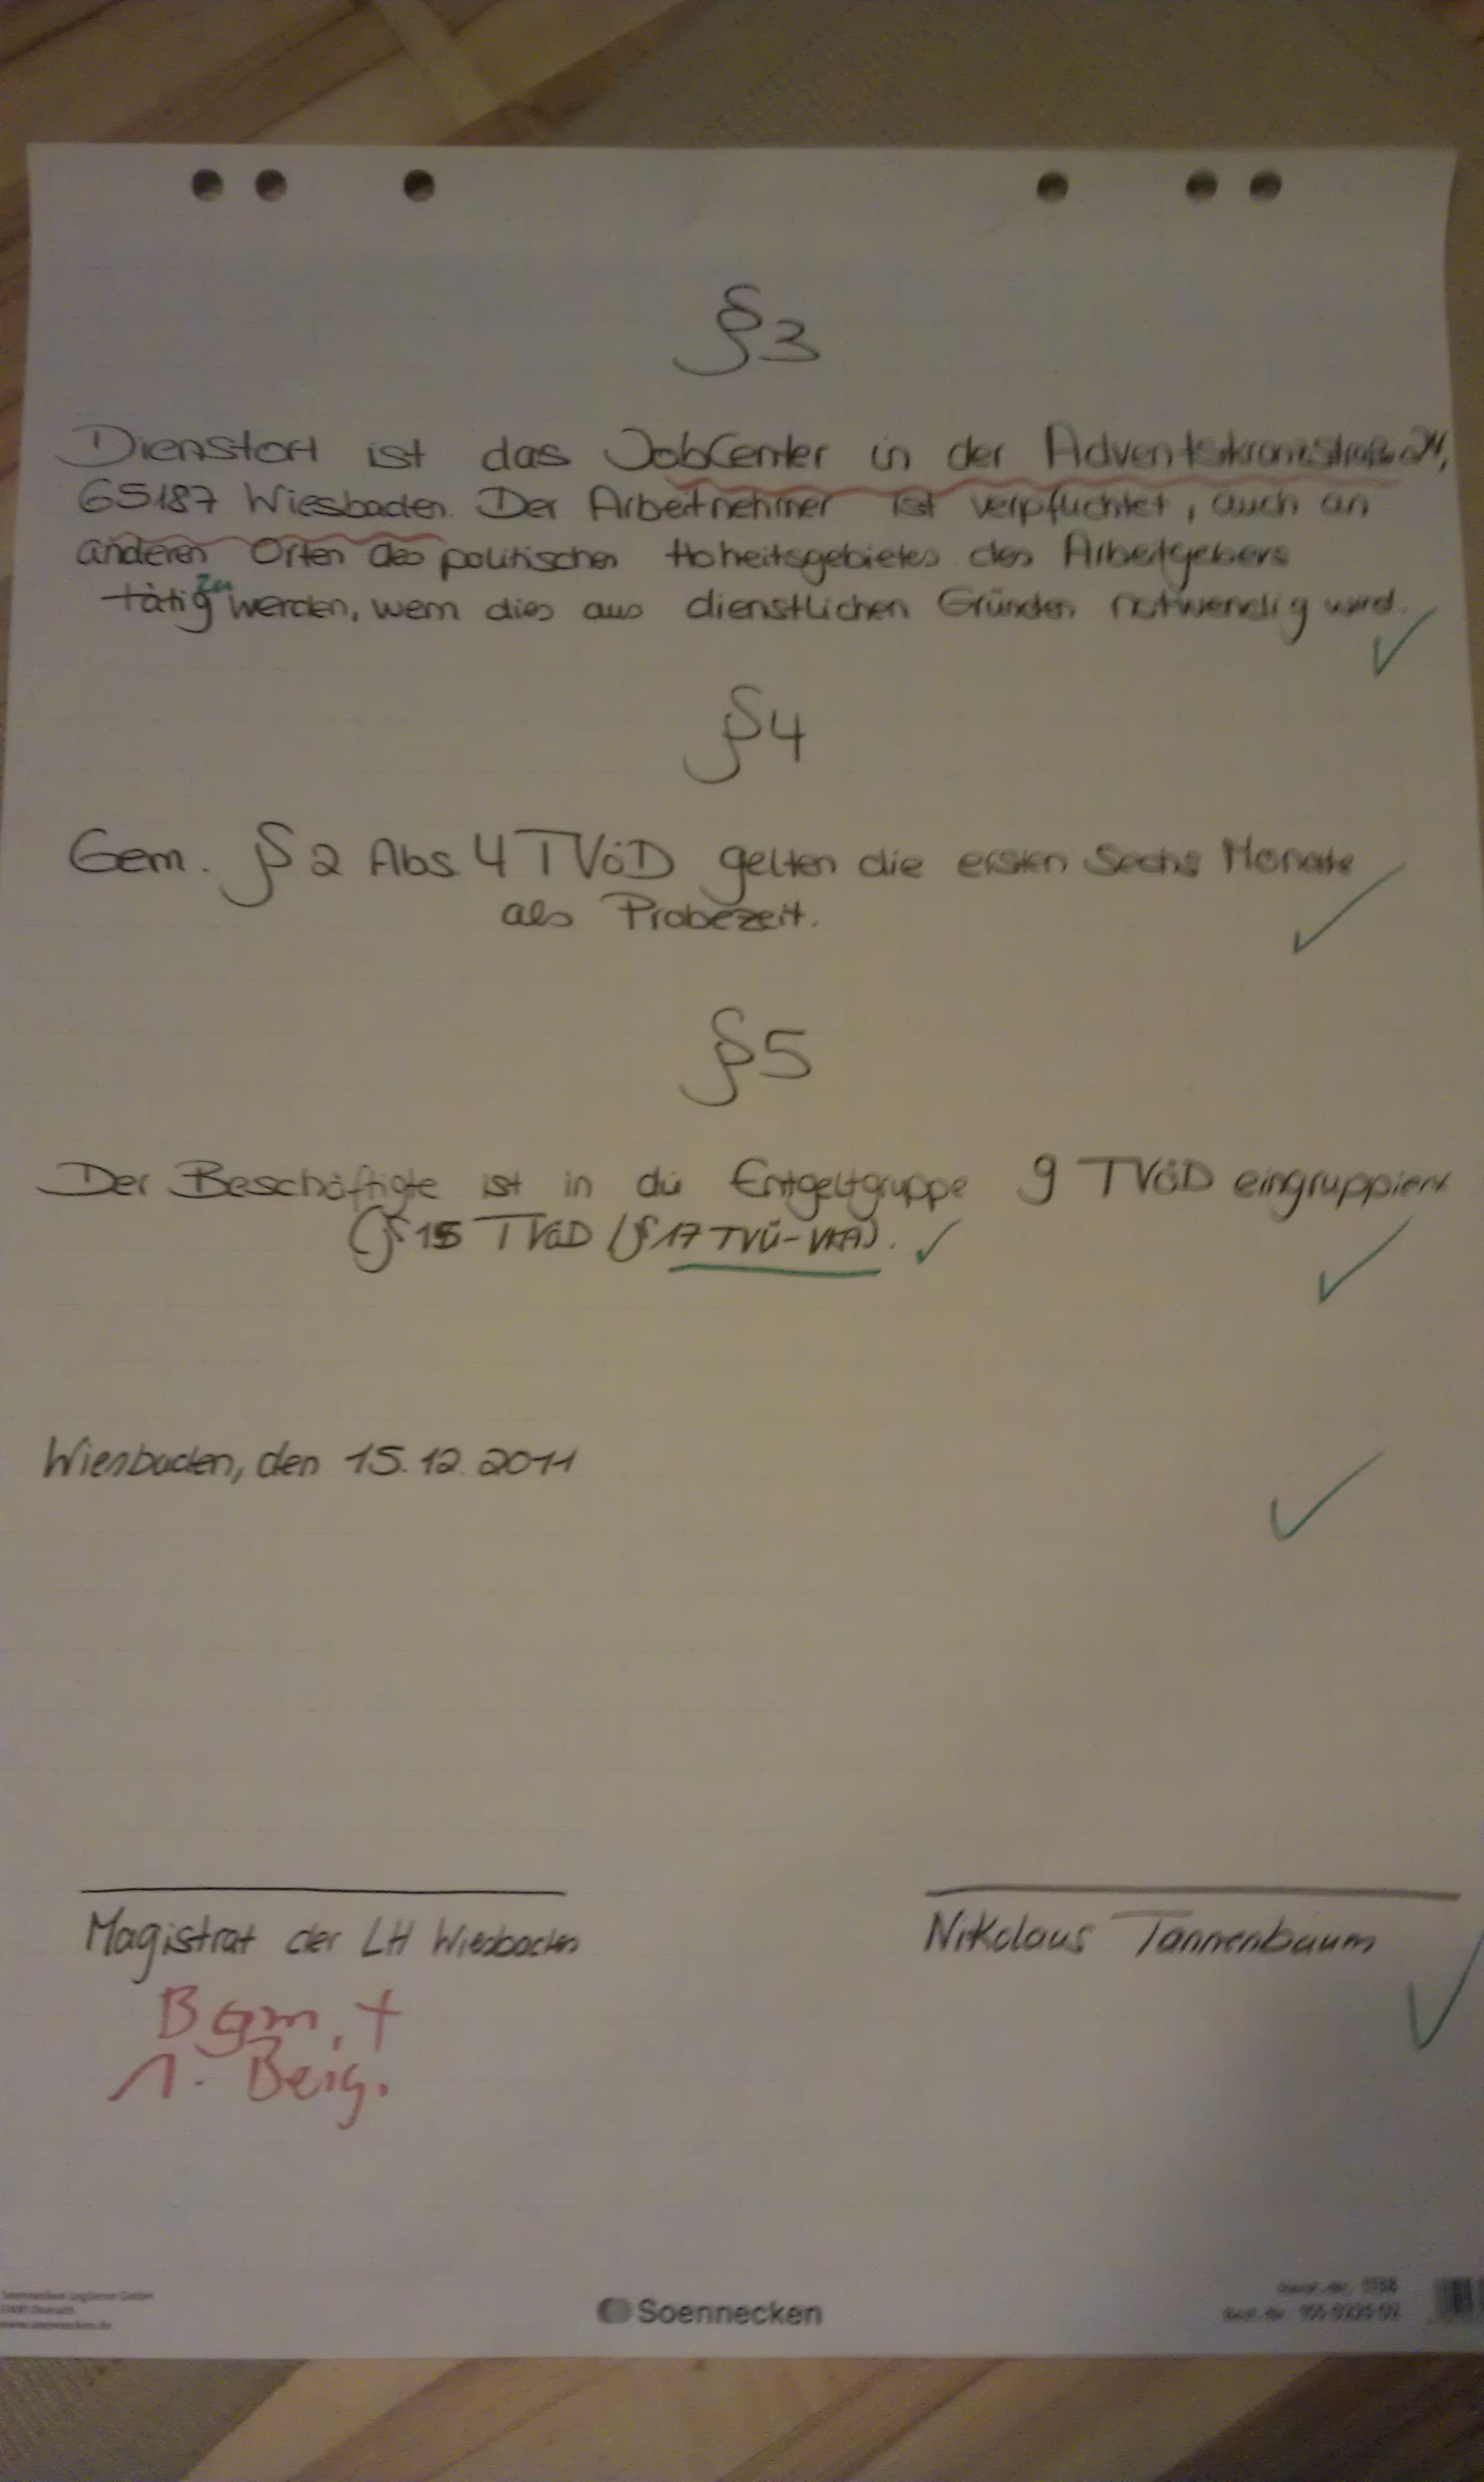 §3
Dienstort ist das JobCenter in der Adventskranzstraße 24,
65187 Wiesbaden. Der Arbeitnehmer ist verpflichtet, auch an
anderen Orten des politischen Hoheitsgebietes des Arbeitgebers
zu
tätig werden, wenn dies aus dienstlichen Gründen notwendig wird.
§4
Gem. § 2 Abs. 4 TVöD gelten die ersten sechs Monate
als Probezeit.
§5
Der Beschäftigte ist in die Entgeltgruppe 9 TVöD eingruppiert
(§ 15 TVöD (§ 17 TVÜ-VKA).
Wiesbaden, den 15.12.2011
Magistrat der LH Wiesbaden
Nikolaus Tannenbaum
Bgm. +
1. Beig.
Soennecken